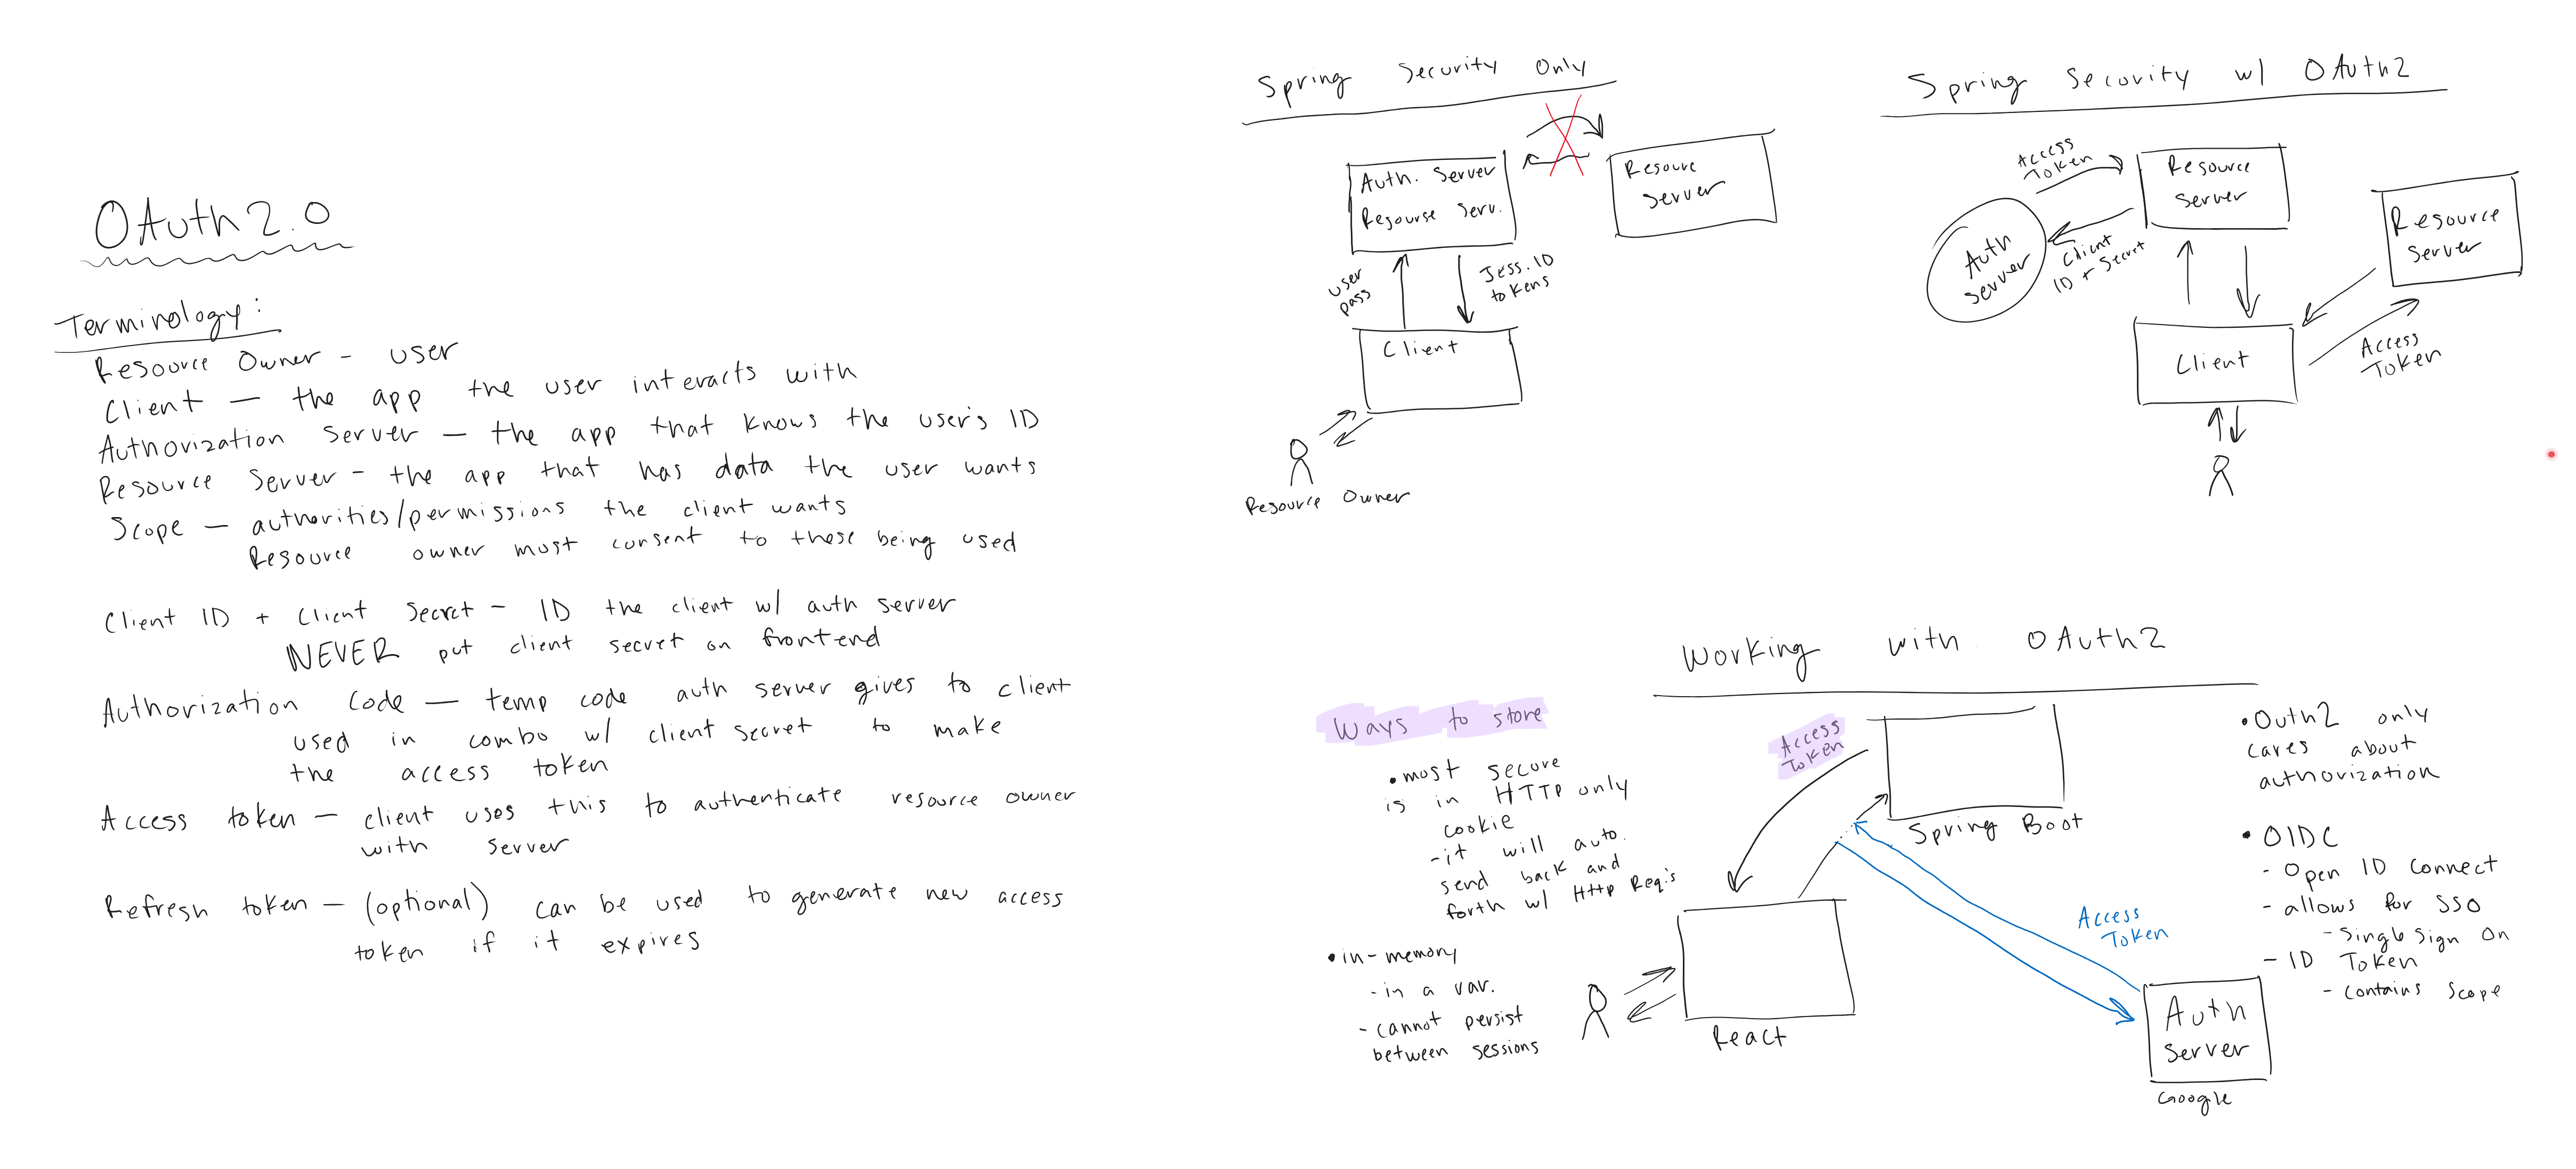 OAuth2.0
Terminology:
Resource Owner - user
Client — the app the user interacts with
Authorization Server — the app that knows the user's ID
Resource Server - the app that has data the user wants
Scope — authorities/permissions the client wants
Resource owner must consent to these being used
Client ID + Client Secret - ID the client w/ auth server
NEVER put client secret on frontend
Authorization Code — temp code auth server gives to client
used in combo w/ client secret to make
the access token
Access token — client uses this to authenticate resource owner
with server
Refresh token — (optional) can be used to generate new access
token if it expires
Spring Security Only
Auth. Server
Resourse Serv.
Resource
Server
user
pass
Jess.ID
tokens
Client
Resource Owner
Spring Security w/ OAuth2
Access
Token
Resource
Server
Auth
Server
Client
ID + Secret
Resource
Server
Client
Access
Token
Working with OAuth2
Ways to store
• most secure
is in HTTP only
cookie
- it will auto.
send back and
forth w/ Http Req's
• in-memory
- in a var.
- cannot persist
between sessions
Access
Token
Spring Boot
React
Access
Token
Auth
Server
Google
• Outh2 only
cares about
authorization
• OIDC
- Open ID Connect
- allows for SSO
- Single Sign On
- ID Token
- contains scope